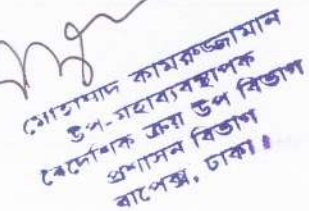 মোহাম্মাদ কামরুজ্জামান
উপ-মহাব্যবস্থাপক
বৈদেশিক ক্রয় উপ বিভাগ
প্রশাসন বিভাগ
বাপেক্স, ঢাকা।